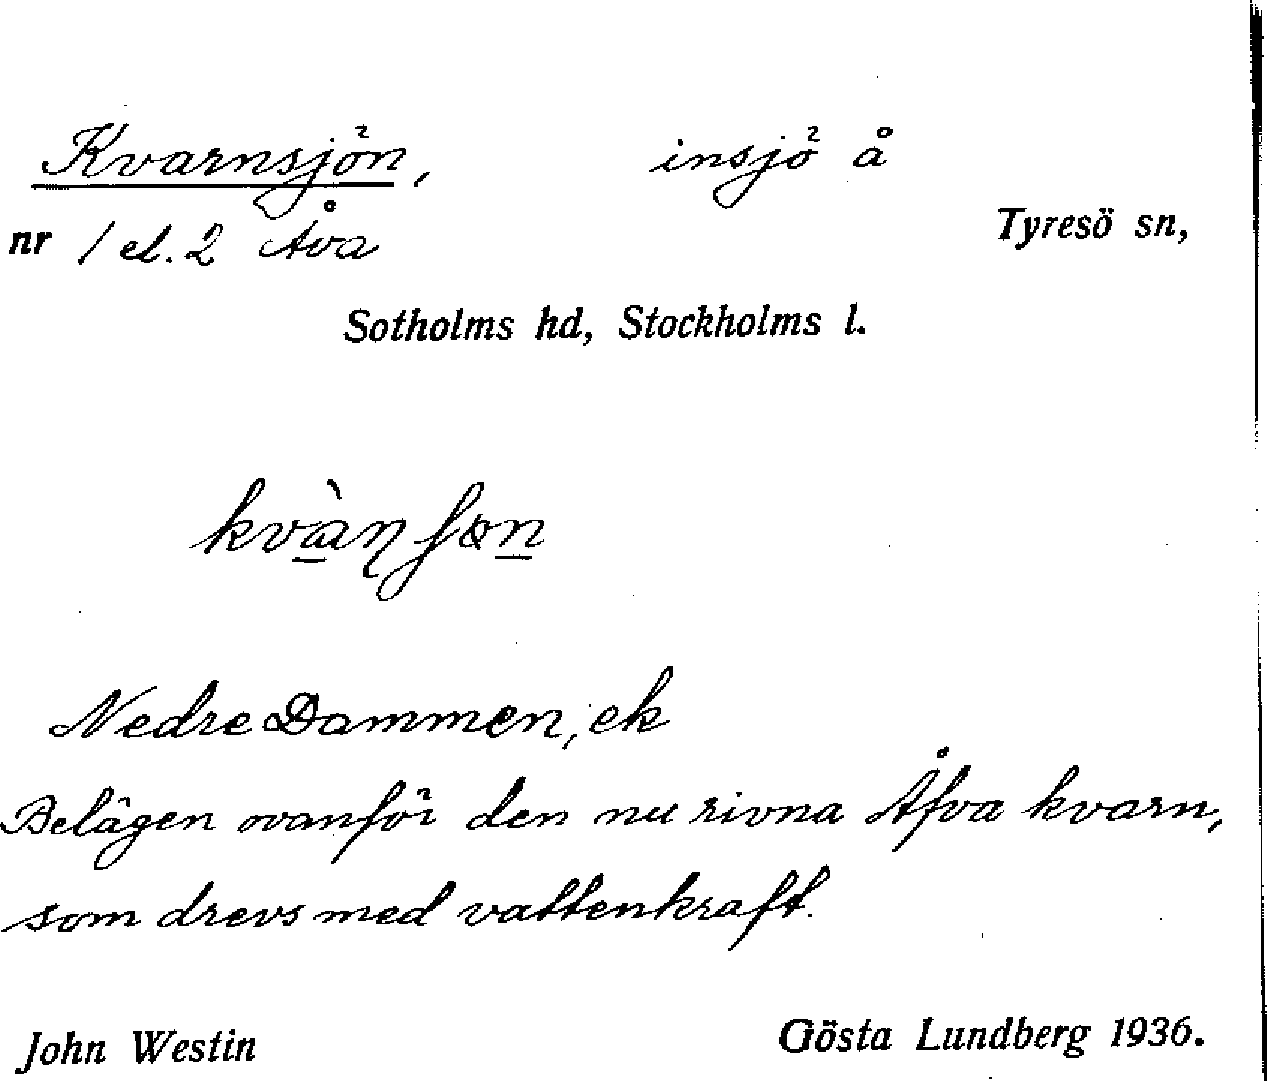 Kvarnsjön, insjö å
nr 1 el. 2 Åva Tyresö sn,
Sotholms hd, Stockholms l.
Nedre Dammen, ek
Belägen ovanför den nu rivna Åfva kvarn,
som drevs med vattenkraft.
John Westin Gösta Lundberg 1936.